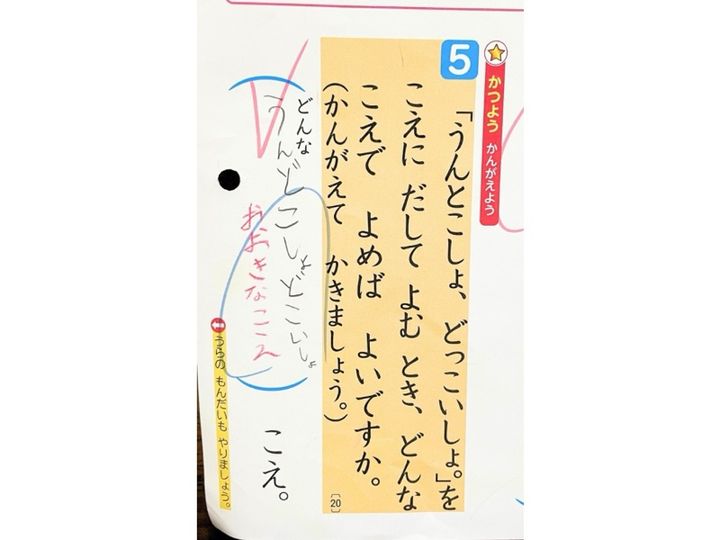 かつよう かんがえよう
5
「うんとこしょ、どっこいしょ。」を
こえに だして よむ とき、どんな
こえで よめば よいですか。
(かんがえて かきましょう。)
[20]
どんな
うんどこしょどこいしょ
おおきなこえ
こえ。
うらの もんだいも やりましょう。